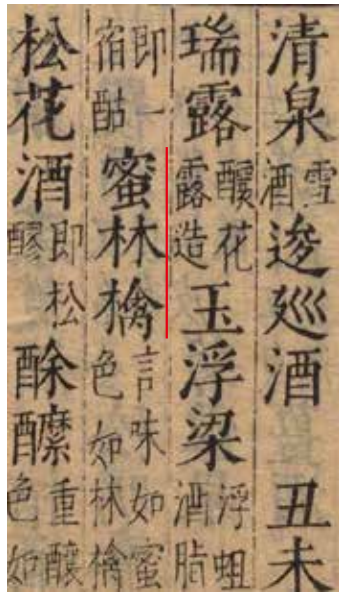 清泉雪酒逡廵酒丑未
瑞露釀花露造玉浮梁浮蛆酒脂
即一宿酤蜜林檎言味如蜜色如林檎
松花酒即松醪酴醿重釀色如